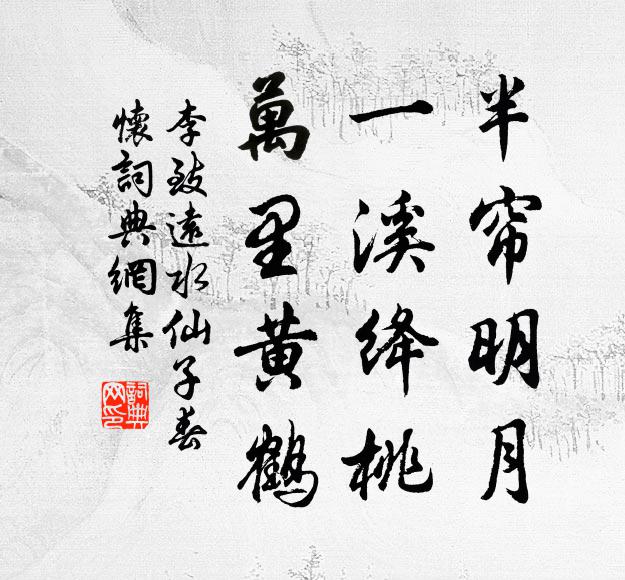 半帘明月
一溪绛桃
萬里黄鶴
李致遠水仙子春
懷詞典網集
詞典
网印